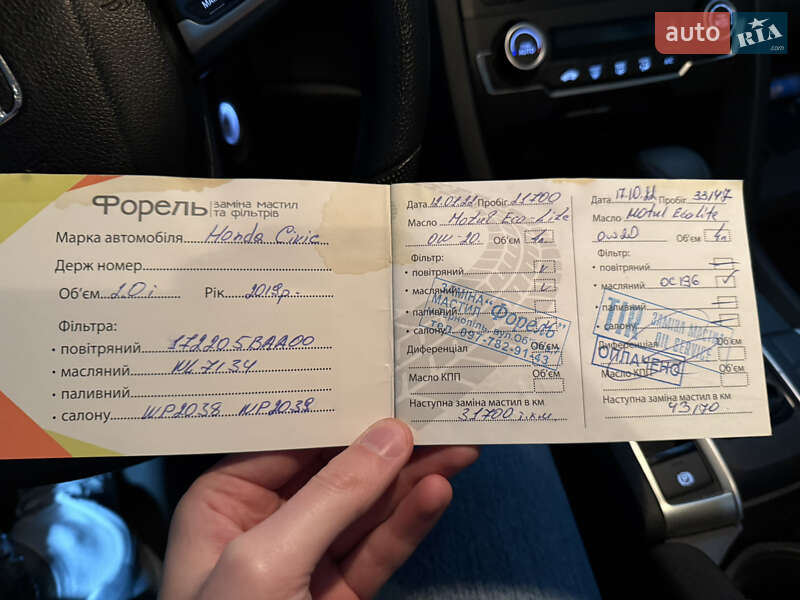 auto RIA .com
AUTO
A/C
P
Форель заміна мастил та фільтрів
Марка автомобіля Honda Civic
Держ номер
Об'єм 2.0 i Рік 2019р.
Фільтра:
• повітряний 172205BAA00
• масляний
• паливний
• салону WP2038 WP2039
Дата Пробіг 21700
Масло Motul Eco-Lite
0W-20 Об'єм 4л
Фільтр:
• повітряний v
• масляний v
• паливний
• салону
Диференціал Об'єм
Масло КПП Об'єм
Наступна заміна мастил в км
31700 т.км
ЗАМІНА МАСТИЛ "Форель"
Тел. 097-782-91-43
Дата 17.10.22 Пробіг 33147
Масло Motul Ecolite
0W20 Об'єм 4л
Фільтр:
• повітряний
• масляний OC196
• паливний
• салону
Диференціал Об'єм
Масло КПП Об'єм
Наступна заміна мастил в км
43170
ЗАМІНА МАСТИЛ
OIL SERVICE
ОПЛАЧЕНО